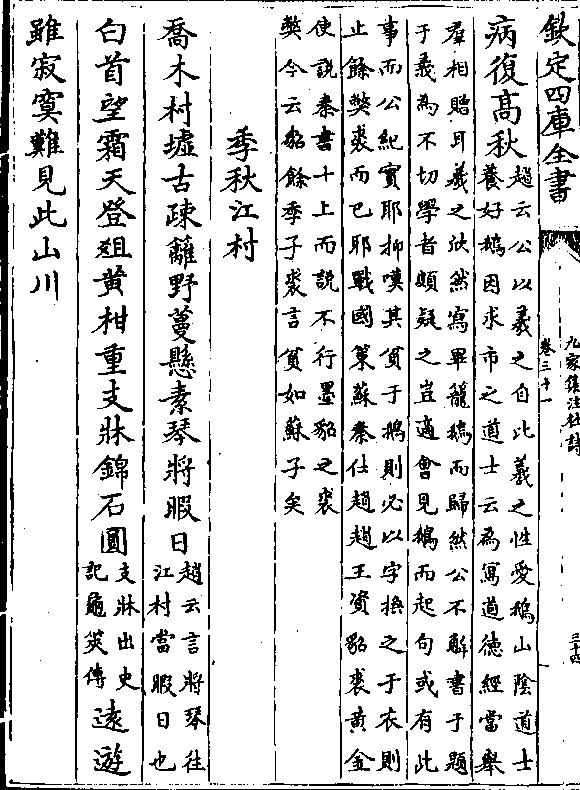 欽定四庫全書
九家集注杜詩
卷三十一
三十四
病復高秋
趙云公以羲之自比羲之性愛鵝山陰道士
養好鵝因求市之道士云為寫道德經當舉
羣相贈耳羲之欣然寫畢籠鵝而歸然公不解書于題
于義為不切學者頗疑之豈適會見鵝而起句或有此
事而公紀實耶抑嘆其貧于鵝則必以字換之于衣則
止餘弊裘而已耶戰國策蘇秦仕趙趙王資貂裘黄金
使説秦書十上而説不行墨貂之裘
弊今云貂餘季子裘言貧如蘇子矣
季秋江村
喬木村墟古疎籬野蔓懸素琴將暇日
趙云言將琴往
江村當暇日也
白首望霜天登俎黄柑重支牀錦石圓
支牀出史
記龜筴傳
遠遊
雖寂寞難見此山川